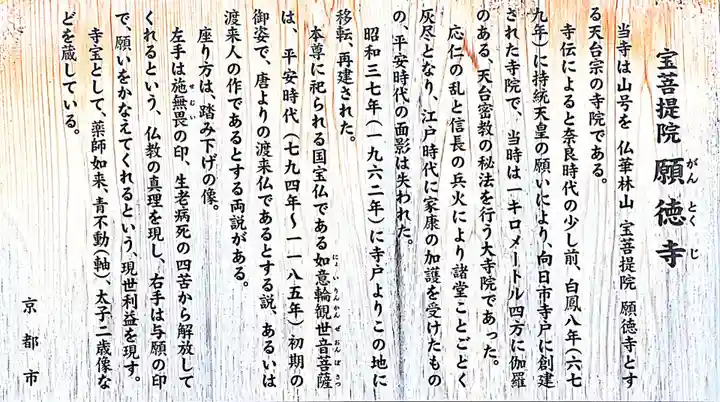 宝菩提院 願徳寺
がん とく じ
当寺は山号を 仏華林山 宝菩提院 願徳寺とす
る天台宗の寺院である。
寺伝によると奈良時代の少し前、白鳳八年(六七
九年)に持統天皇の願いにより、向日市寺戸に創建
された寺院で、当時は一キロメートル四方に伽羅
のある、天台密教の秘法を行う大寺院であった。
応仁の乱と信長の兵火により諸堂ことごとく
灰尽となり、江戸時代に家康の加護を受けたもの
の、平安時代の面影は失われた。
昭和三七年(一九六二年)に寺戸よりこの地に
移転、再建された。
本尊に祀られる国宝仏である如意輪観世音菩薩
にょいりんかんぜおんぼさつ
は、平安時代(七九四年〜一一八五年)初期の
御姿で、唐よりの渡来仏であるとする説、あるいは
渡来人の作であるとする両説がある。
座り方は、踏み下げの像。
左手は施無畏の印、生老病死の四苦から解放して
せむい
くれるという、仏教の真理を現し、右手は与願の印
で、願いをかなえてくれるという、現世利益を現す。
寺宝として、薬師如来、青不動(軸)、太子二歳像な
どを蔵している。
京都市